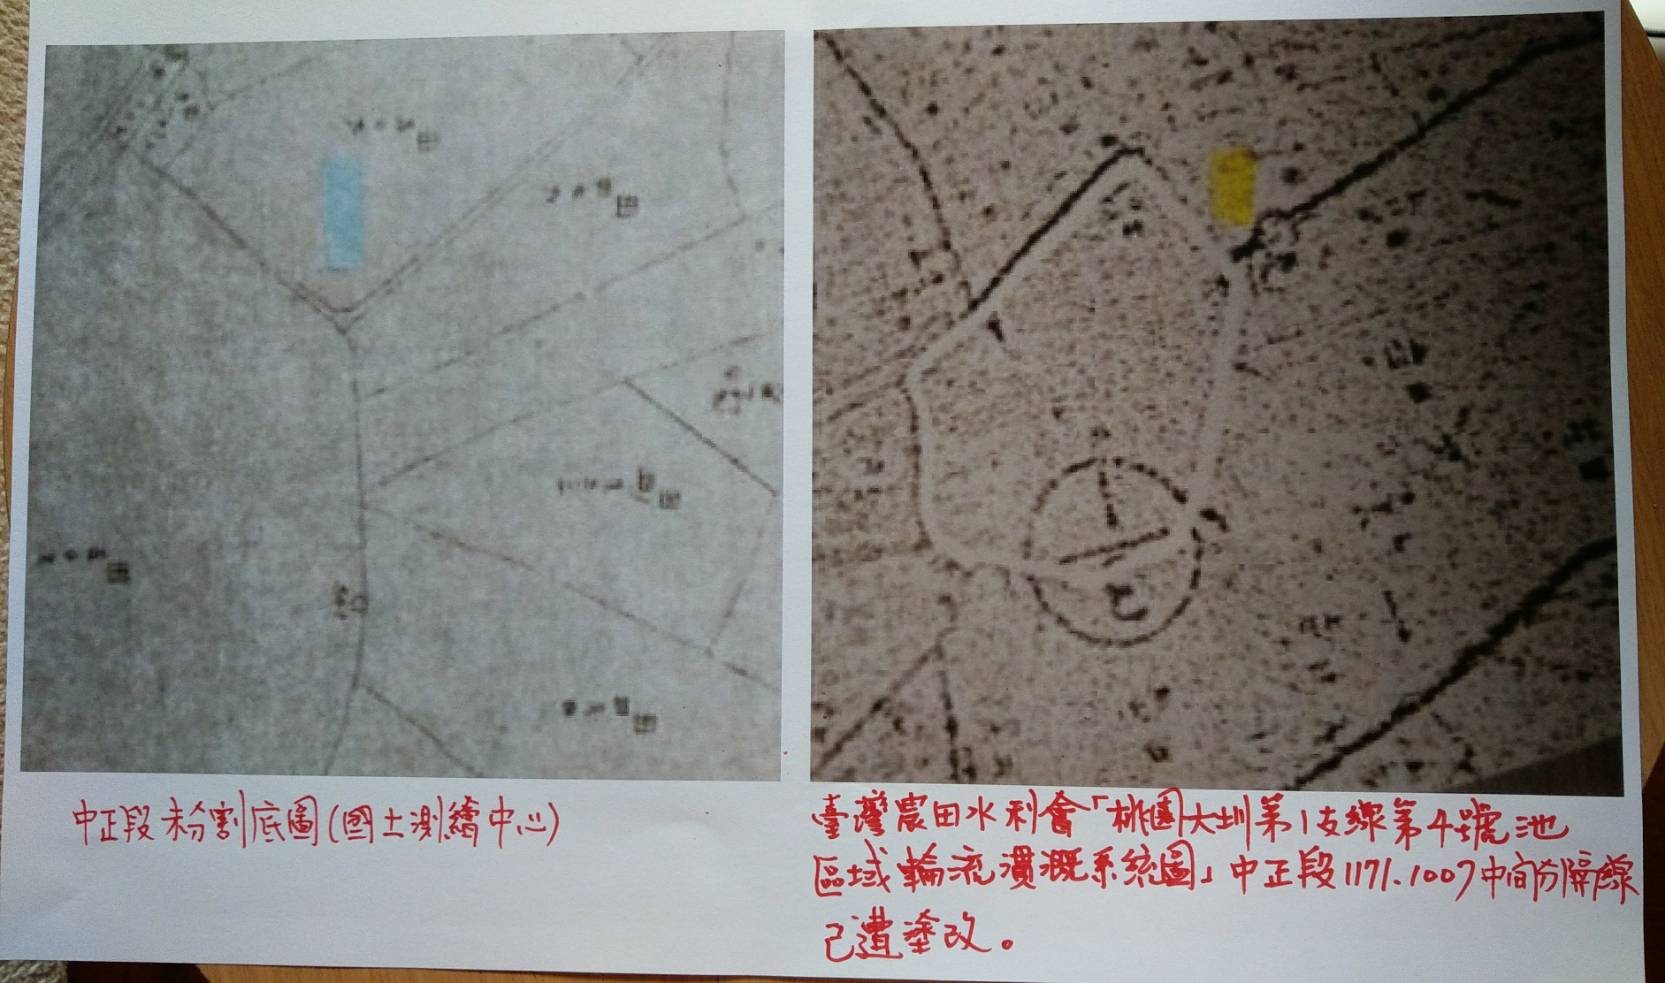 中正段未分割底圖(國土測繪中心)
臺灣農田水利會「桃園大圳第1支線第4號池
區域輪流灌溉系統圖」中正段1171.1007中間分隔線
已遭塗改。